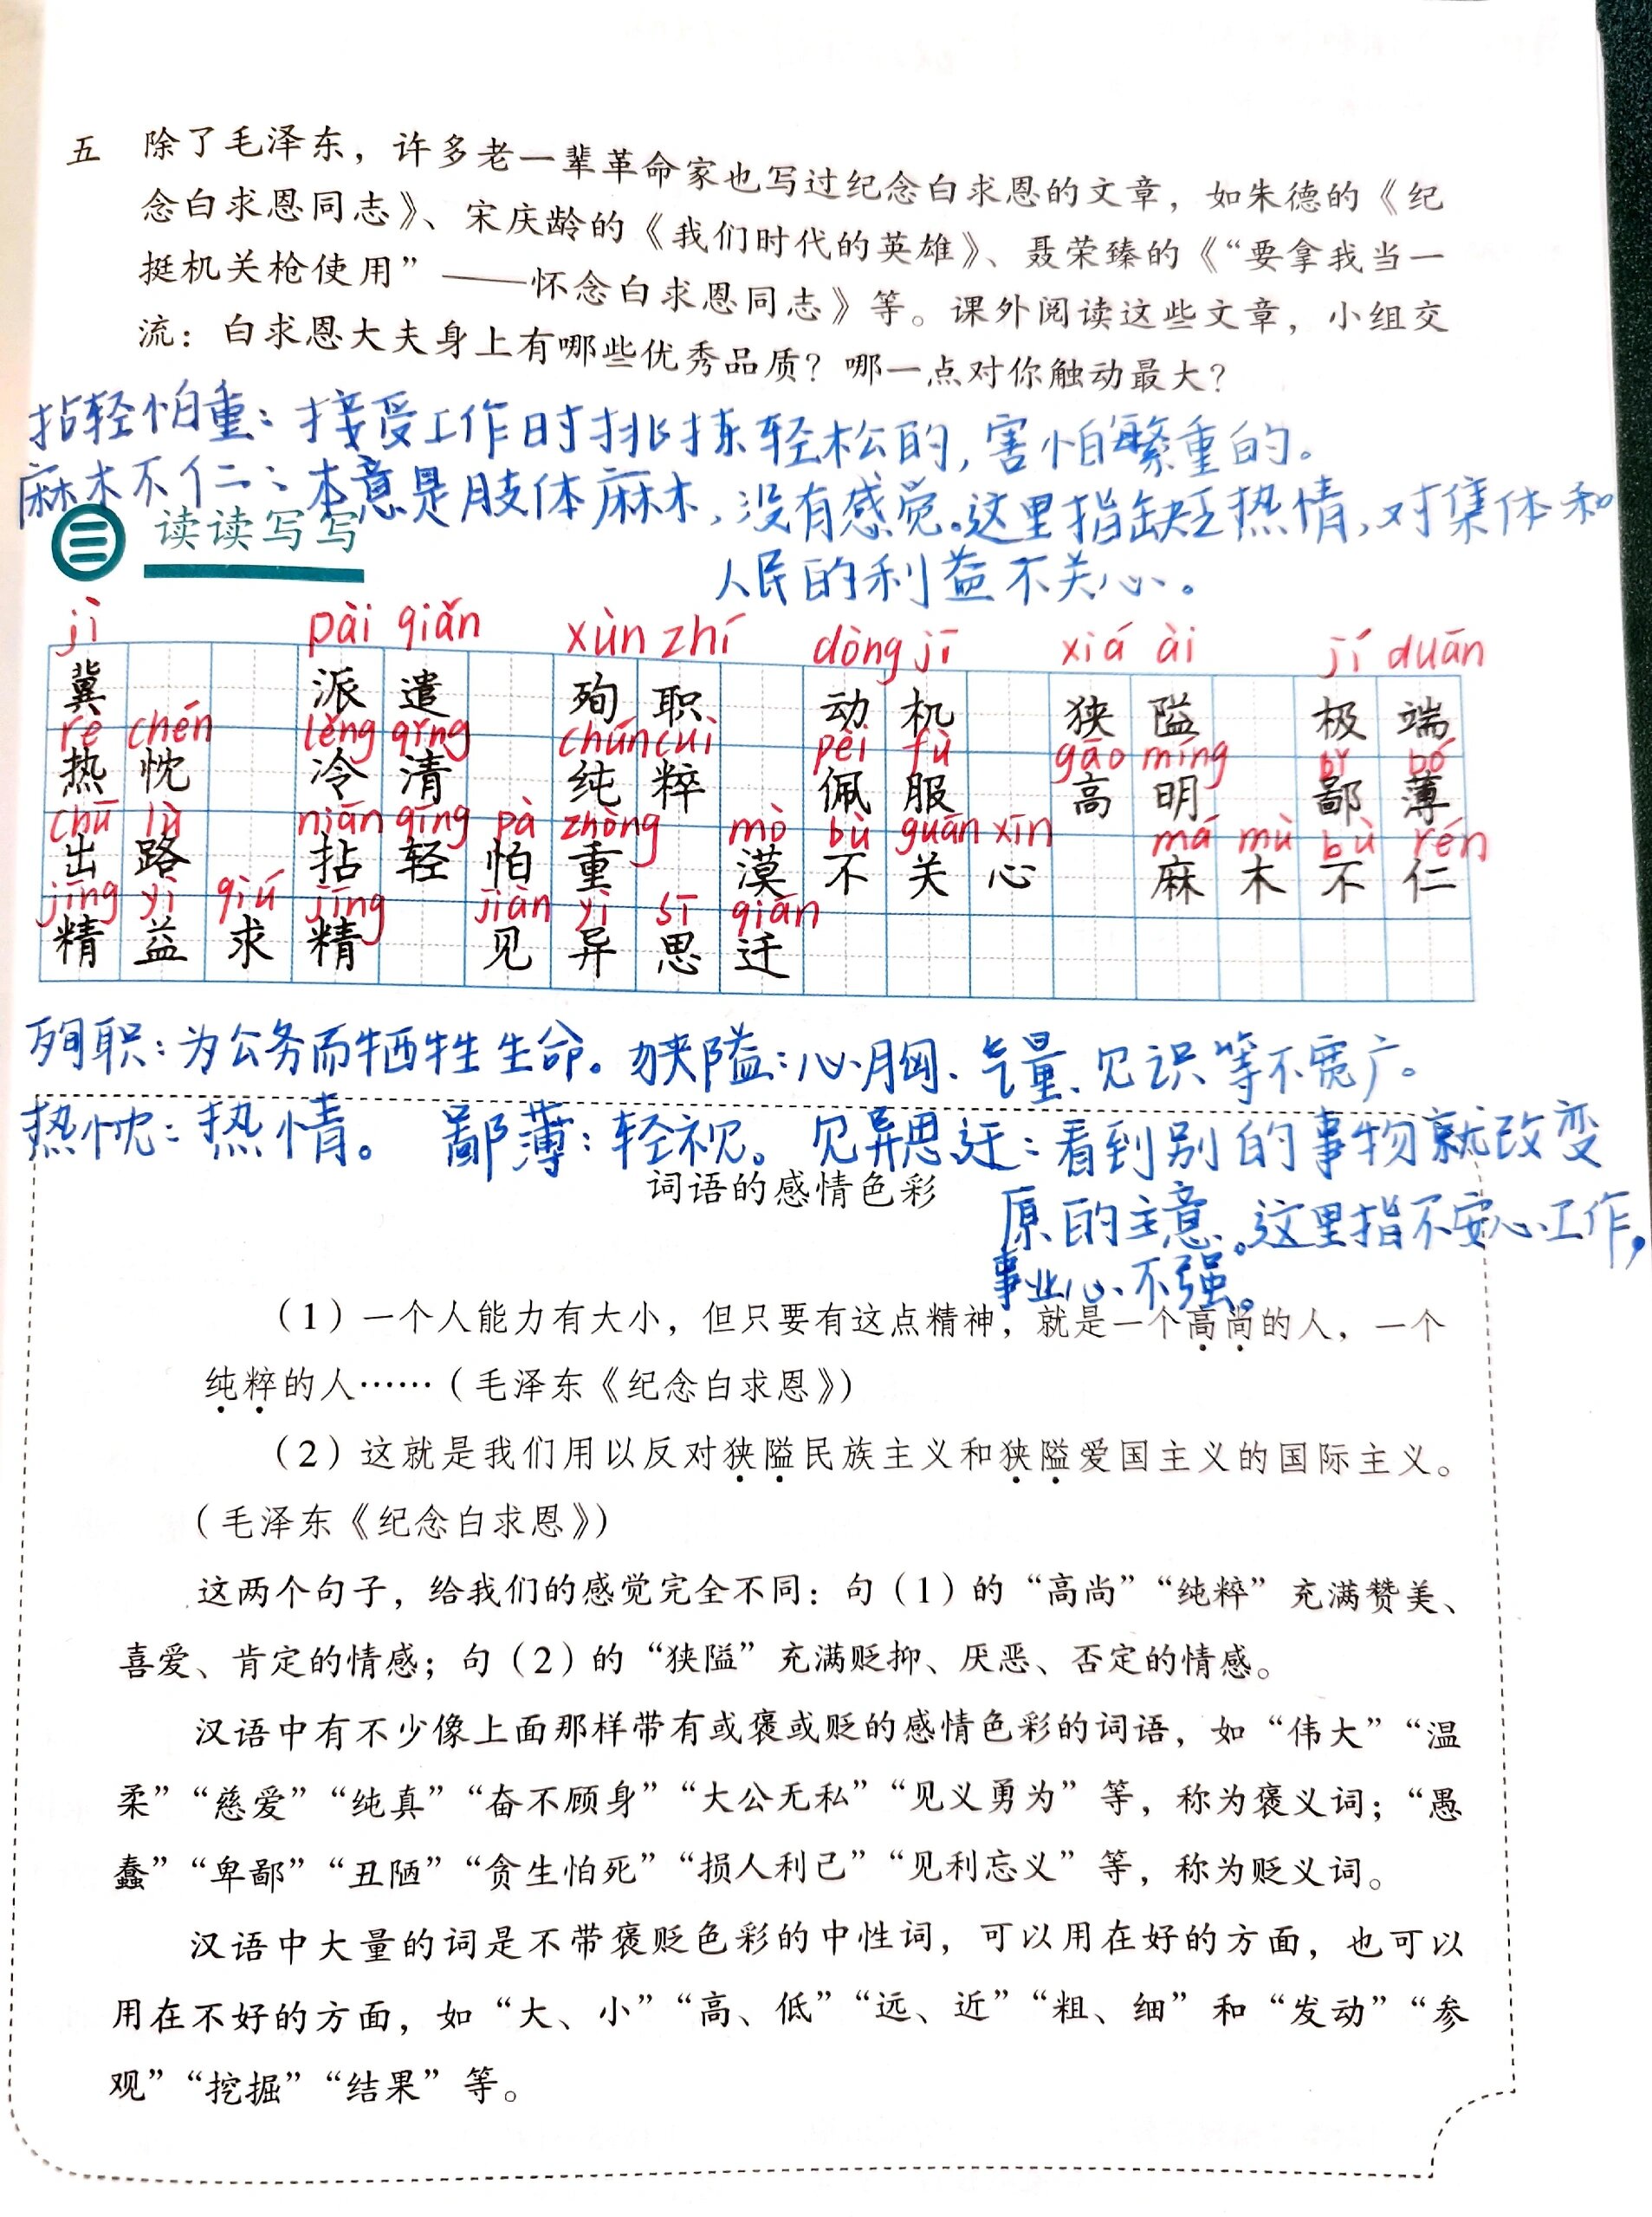 五 除了毛泽东，许多老一辈革命家也写过纪念白求恩的文章，如朱德的《纪
念白求恩同志》、宋庆龄的《我们时代的英雄》、聂荣臻的《“要拿我当一
挺机关枪使用”——怀念白求恩同志》等。课外阅读这些文章，小组交
流：白求恩大夫身上有哪些优秀品质？哪一点对你触动最大？
拈轻怕重：接受工作时挑拣轻松的，害怕繁重的。
麻木不仁：本意是肢体麻木，没有感觉。这里指缺乏热情，对集体和
人民的利益不关心。
读读写写
jì pài qiǎn xùn zhí dòng jī xiá ài jí duān
冀 派遣 殉职 动机 狭隘 极端
rè chén lěng qīng chún cuì pèi fù gāo míng bǐ bó
热忱 冷清 纯粹 佩服 高明 鄙薄
chū lù niān qīng pà zhòng mò bù guān xīn má mù bù rén
出路 拈轻怕重 漠不关心 麻木不仁
jīng yì qiú jīng jiàn yì sī qiān
精益求精 见异思迁
殉职：为公务而牺牲生命。狭隘：心胸、气量、见识等不宽广。
热忱：热情。 鄙薄：轻视。 见异思迁：看到别的事物就改变
原的主意。这里指不安心工作，
事业心不强。
词语的感情色彩
（1）一个人能力有大小，但只要有这点精神，就是一个高尚的人，一个
纯粹的人……（毛泽东《纪念白求恩》）
（2）这就是我们用以反对狭隘民族主义和狭隘爱国主义的国际主义。
（毛泽东《纪念白求恩》）
这两个句子，给我们的感觉完全不同：句（1）的“高尚”“纯粹”充满赞美、
喜爱、肯定的情感；句（2）的“狭隘”充满贬抑、厌恶、否定的情感。
汉语中有不少像上面那样带有或褒或贬的感情色彩的词语，如“伟大”“温
柔”“慈爱”“纯真”“奋不顾身”“大公无私”“见义勇为”等，称为褒义词；“愚
蠢”“卑鄙”“丑陋”“贪生怕死”“损人利己”“见利忘义”等，称为贬义词。
汉语中大量的词是不带褒贬色彩的中性词，可以用在好的方面，也可以
用在不好的方面，如“大、小”“高、低”“远、近”“粗、细”和“发动”“参
观”“挖掘”“结果”等。